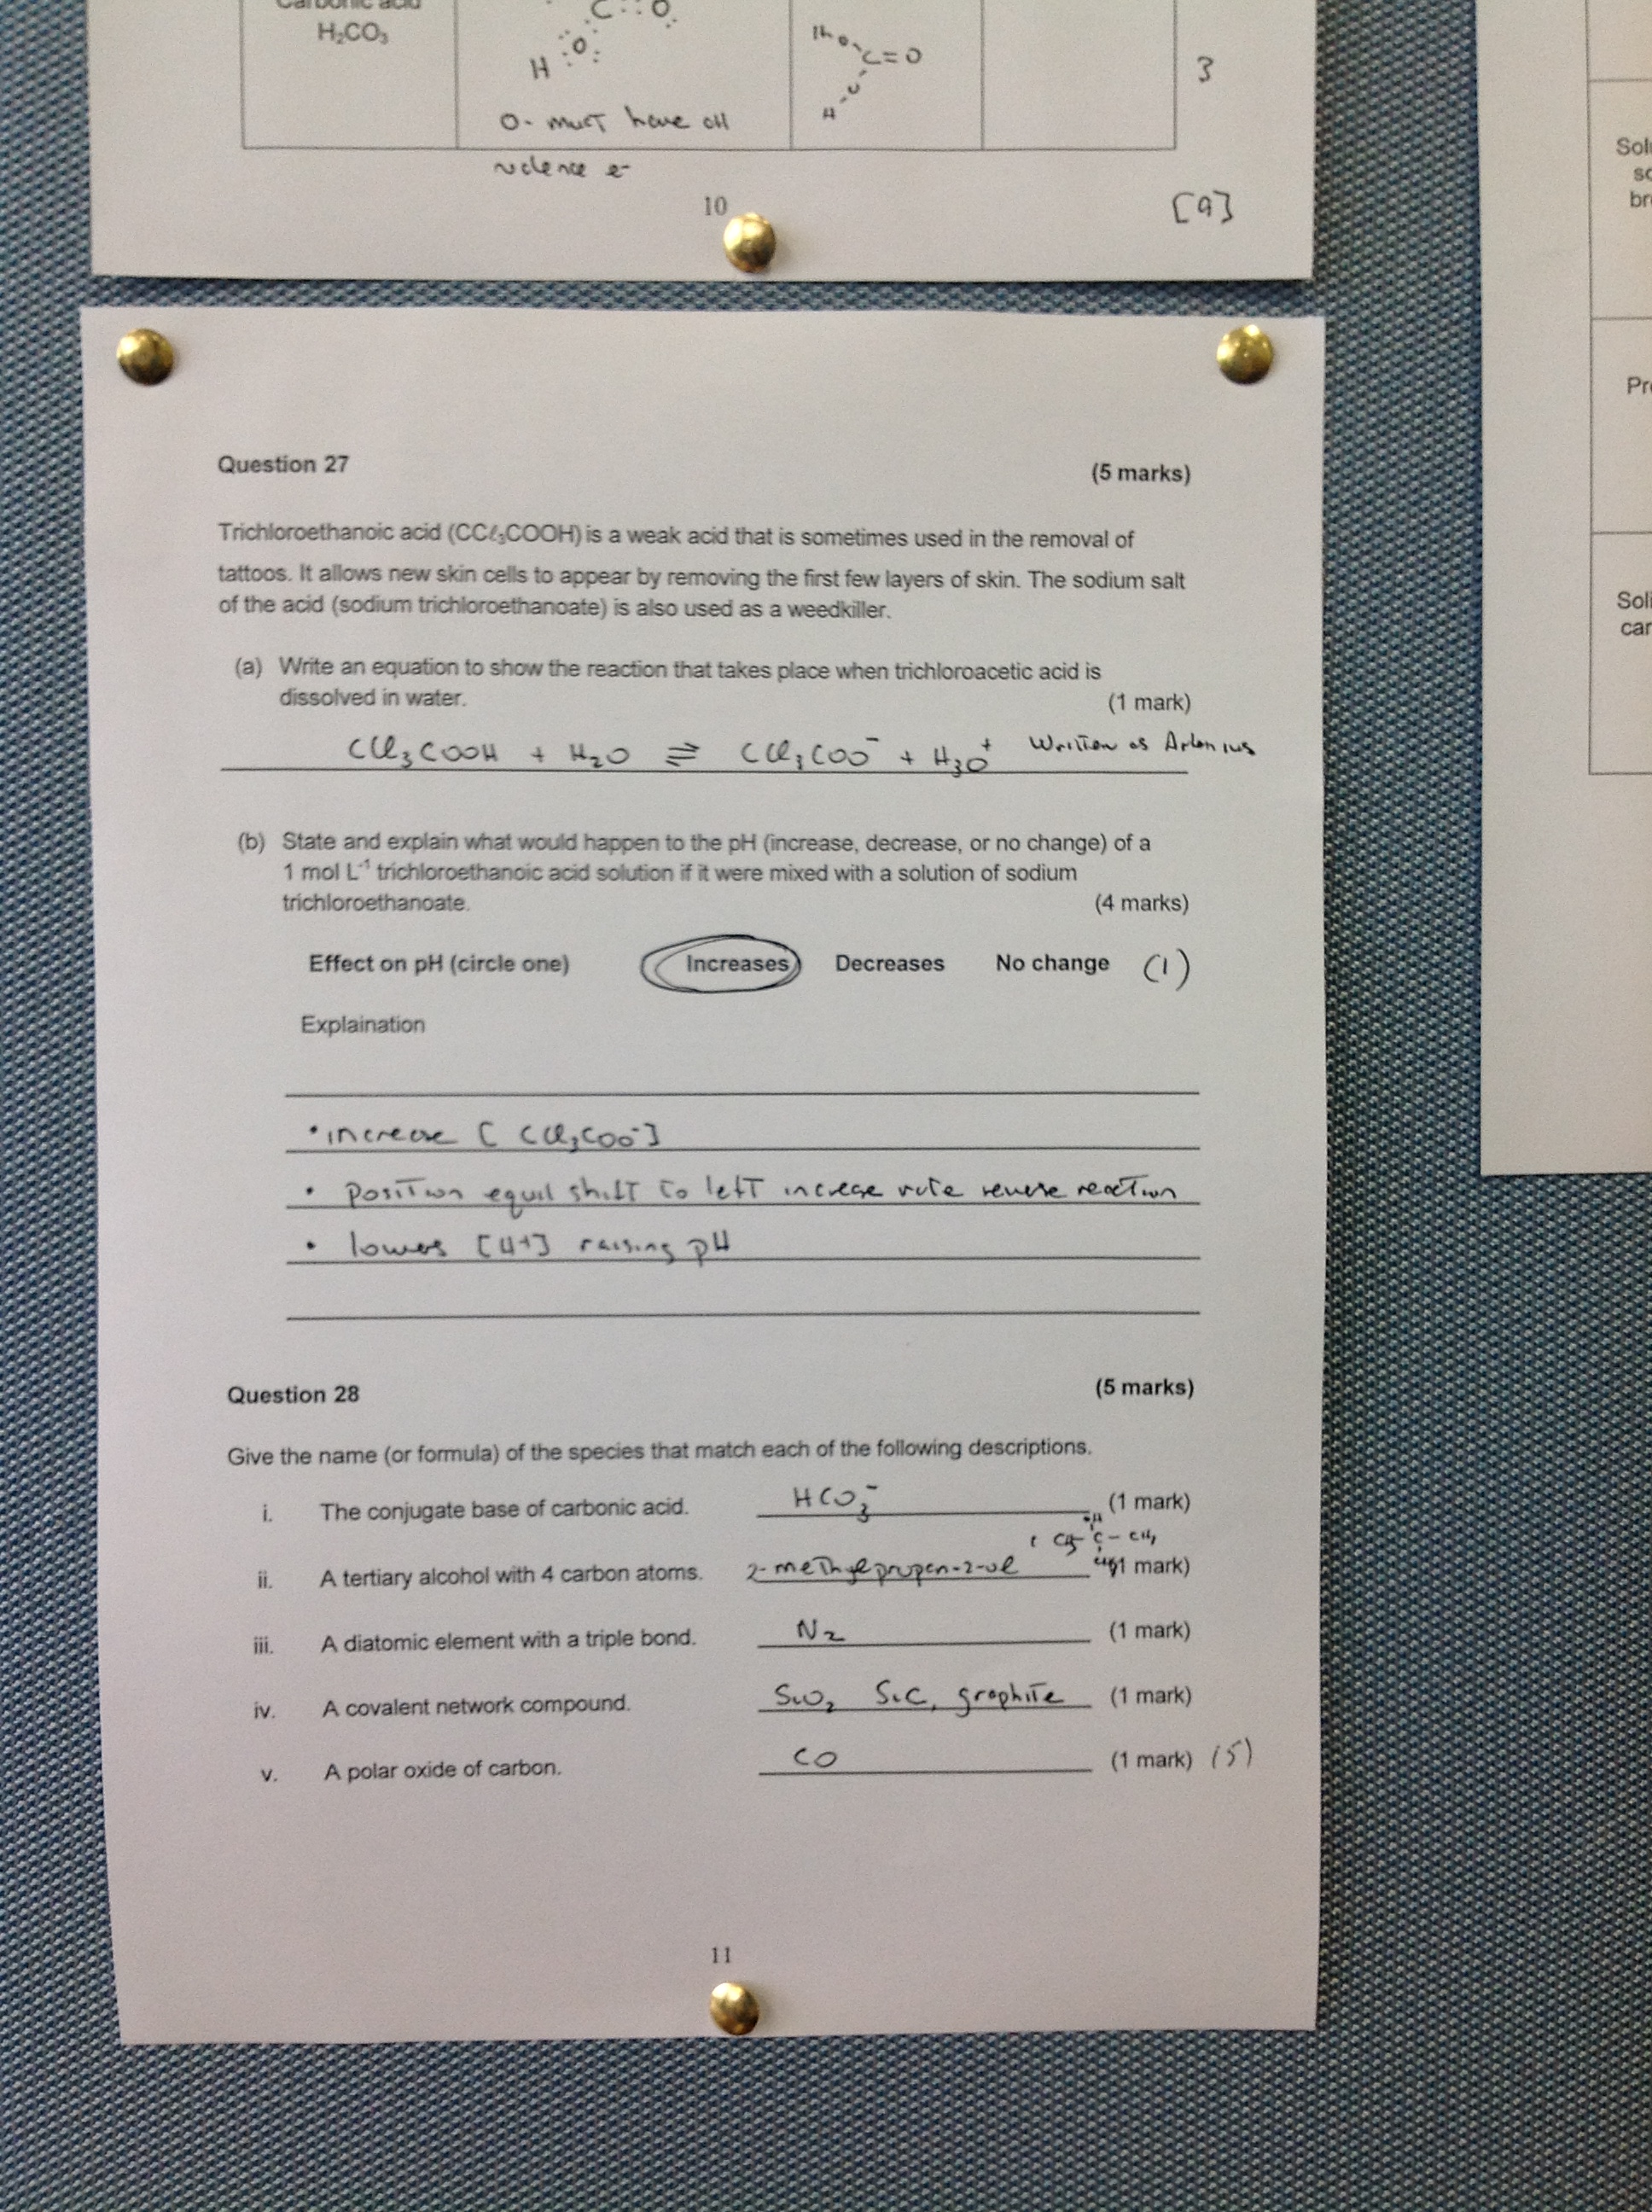 Carbonic acid
H₂CO₃
C :: O
H : O :
H O
C = O
H
3
O - must have all
valence e-
10
[9]
Question 27 (5 marks)
Trichloroethanoic acid (CCℓ₃COOH) is a weak acid that is sometimes used in the removal of
tattoos. It allows new skin cells to appear by removing the first few layers of skin. The sodium salt
of the acid (sodium trichloroethanoate) is also used as a weedkiller.
(a) Write an equation to show the reaction that takes place when trichloroacetic acid is
dissolved in water. (1 mark)
CCl₃COOH + H₂O ⇌ CCl₃COO⁻ + H₃O⁺ Written as
(b) State and explain what would happen to the pH (increase, decrease, or no change) of a
1 mol L⁻¹ trichloroethanoic acid solution if it were mixed with a solution of sodium
trichloroethanoate. (4 marks)
Effect on pH (circle one) Increases Decreases No change (1)
Explaination
• increase [CCl₃COO⁻]
• position equil shift to left increase rate reverse reaction
• lowers [H+] raising pH
Question 28 (5 marks)
Give the name (or formula) of the species that match each of the following descriptions.
i. The conjugate base of carbonic acid. HCO₃⁻ (1 mark)
OH
CH₃ C - CH₃
ii. A tertiary alcohol with 4 carbon atoms. 2-methylpropan-2-ol CH₃ (1 mark)
iii. A diatomic element with a triple bond. N₂ (1 mark)
iv. A covalent network compound. SiO₂ SiC, graphite (1 mark)
v. A polar oxide of carbon. CO (1 mark) (5)
11
Pr